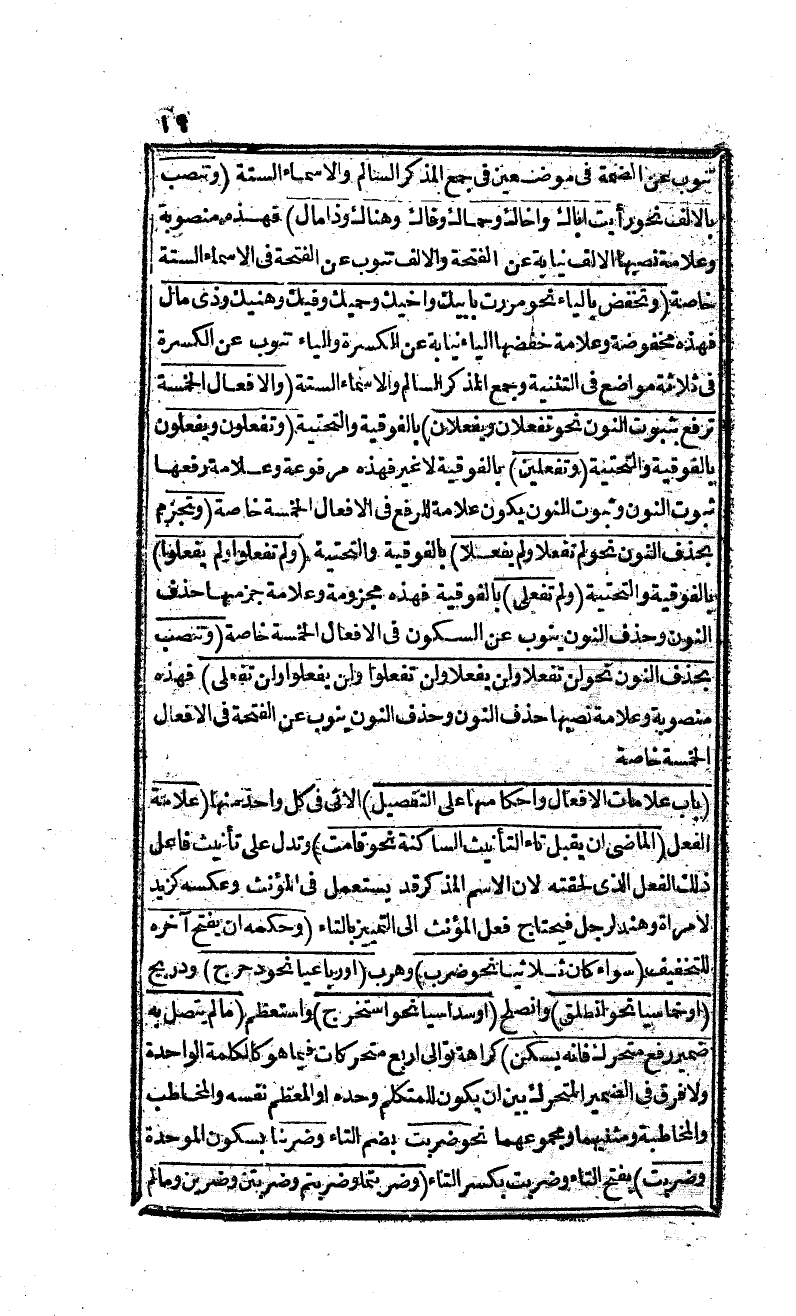 ١٩
تنوب عن الضمة فى موضعين فى جمع المذكر السالم والاسماء الستة (وتنصب
بالالف نحو رأيت اباك واخاك وحماك وفاك وهناك وذا مال) فهذه منصوبة
وعلامة نصبها الالف نيابة عن الفتحة والالف تنوب عن الفتحة فى الاسماء الستة
خاصة (وتخفض بالياء نحو مررت بابيك واخيك وحميك وفيك وهنيك وذى مال
فهذه مخفوضة وعلامة خفضها الياء نيابة عن الكسرة والياء تنوب عن الكسرة
فى ثلاثة مواضع فى التثنية وجمع المذكر السالم والاسماء الستة (والافعال الخمسة
ترفع بثبوت النون نحو تفعلان ويفعلان) بالفوقية والتحتية (وتفعلون ويفعلون
بالفوقية والتحتية (وتفعلين) بالفوقية لا غير فهذه مرفوعة وعلامة رفعها
ثبوت النون وثبوت النون يكون علامة للرفع فى الافعال الخمسة خاصة (وتجزم
بحذف النون نحو لم تفعلا ولم يفعلا) بالفوقية والتحتية (ولم تفعلوا ولم يفعلوا)
بالفوقية والتحتية (ولم تفعلى) بالفوقية فهذه مجزومة وعلامة جزمها حذف
النون وحذف النون ينوب عن السكون فى الافعال الخمسة خاصة (وتنصب
بحذف النون نحو لن تفعلا ولن يفعلا ولن تفعلوا ولن يفعلوا ولن تفعلى) فهذه
منصوبة وعلامة نصبها حذف النون وحذف النون ينوب عن الفتحة فى الافعال
الخمسة خاصة
(باب علامات الافعال واحكامها على التفصيل) الاتى فى كل واحد منها (علامة
الفعل (الماضى ان يقبل تاء التأنيث الساكنة نحو قامت) وتدل على تأنيث فاعل
ذلك الفعل الذى لحقته لان الاسم المذكر قد يستعمل فى المؤنث وعكسه كزيد
لامراة وهند لرجل فيحتاج فعل المؤنث الى التمييز بالتاء (وحكمه ان يفتح آخره
للتخفيف (سواء كان ثلاثيا نحو ضرب) وهرب (او رباعيا نحو دحرج) ودربح
(او خماسيا نحو انطلق) وانصلح (او سداسيا نحو استخرج) واستعظم (ما لم يتصل به
ضمير رفع متحرك فانه يسكن) كراهة توالى اربع متحركات فيما هو كالكلمة الواحدة
ولا فرق فى الضمير المتحرك بين ان يكون للمتكلم وحده او المعظم نفسه والمخاطب
والمخاطبة ومثنيهما ومجموعهما نحو ضربت بضم التاء وضربنا بسكون الموحدة
وضربت) بفتح التاء وضربت بكسر التاء (وضربتما وضربتم وضربتن وضربن وما لم